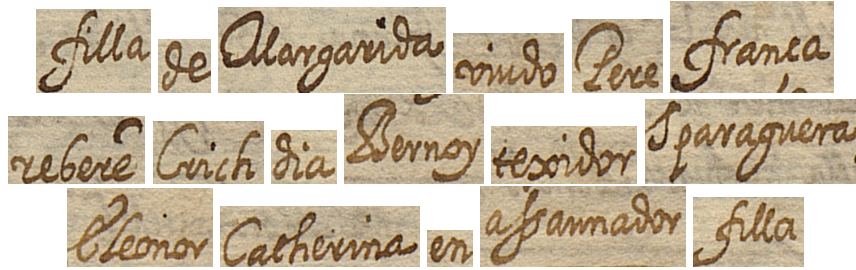 filla de Margarida viudo Pere franca
reberé Crich dia Bernoy texidor Sparaguera
Eleonor Catherina en assaunador filla